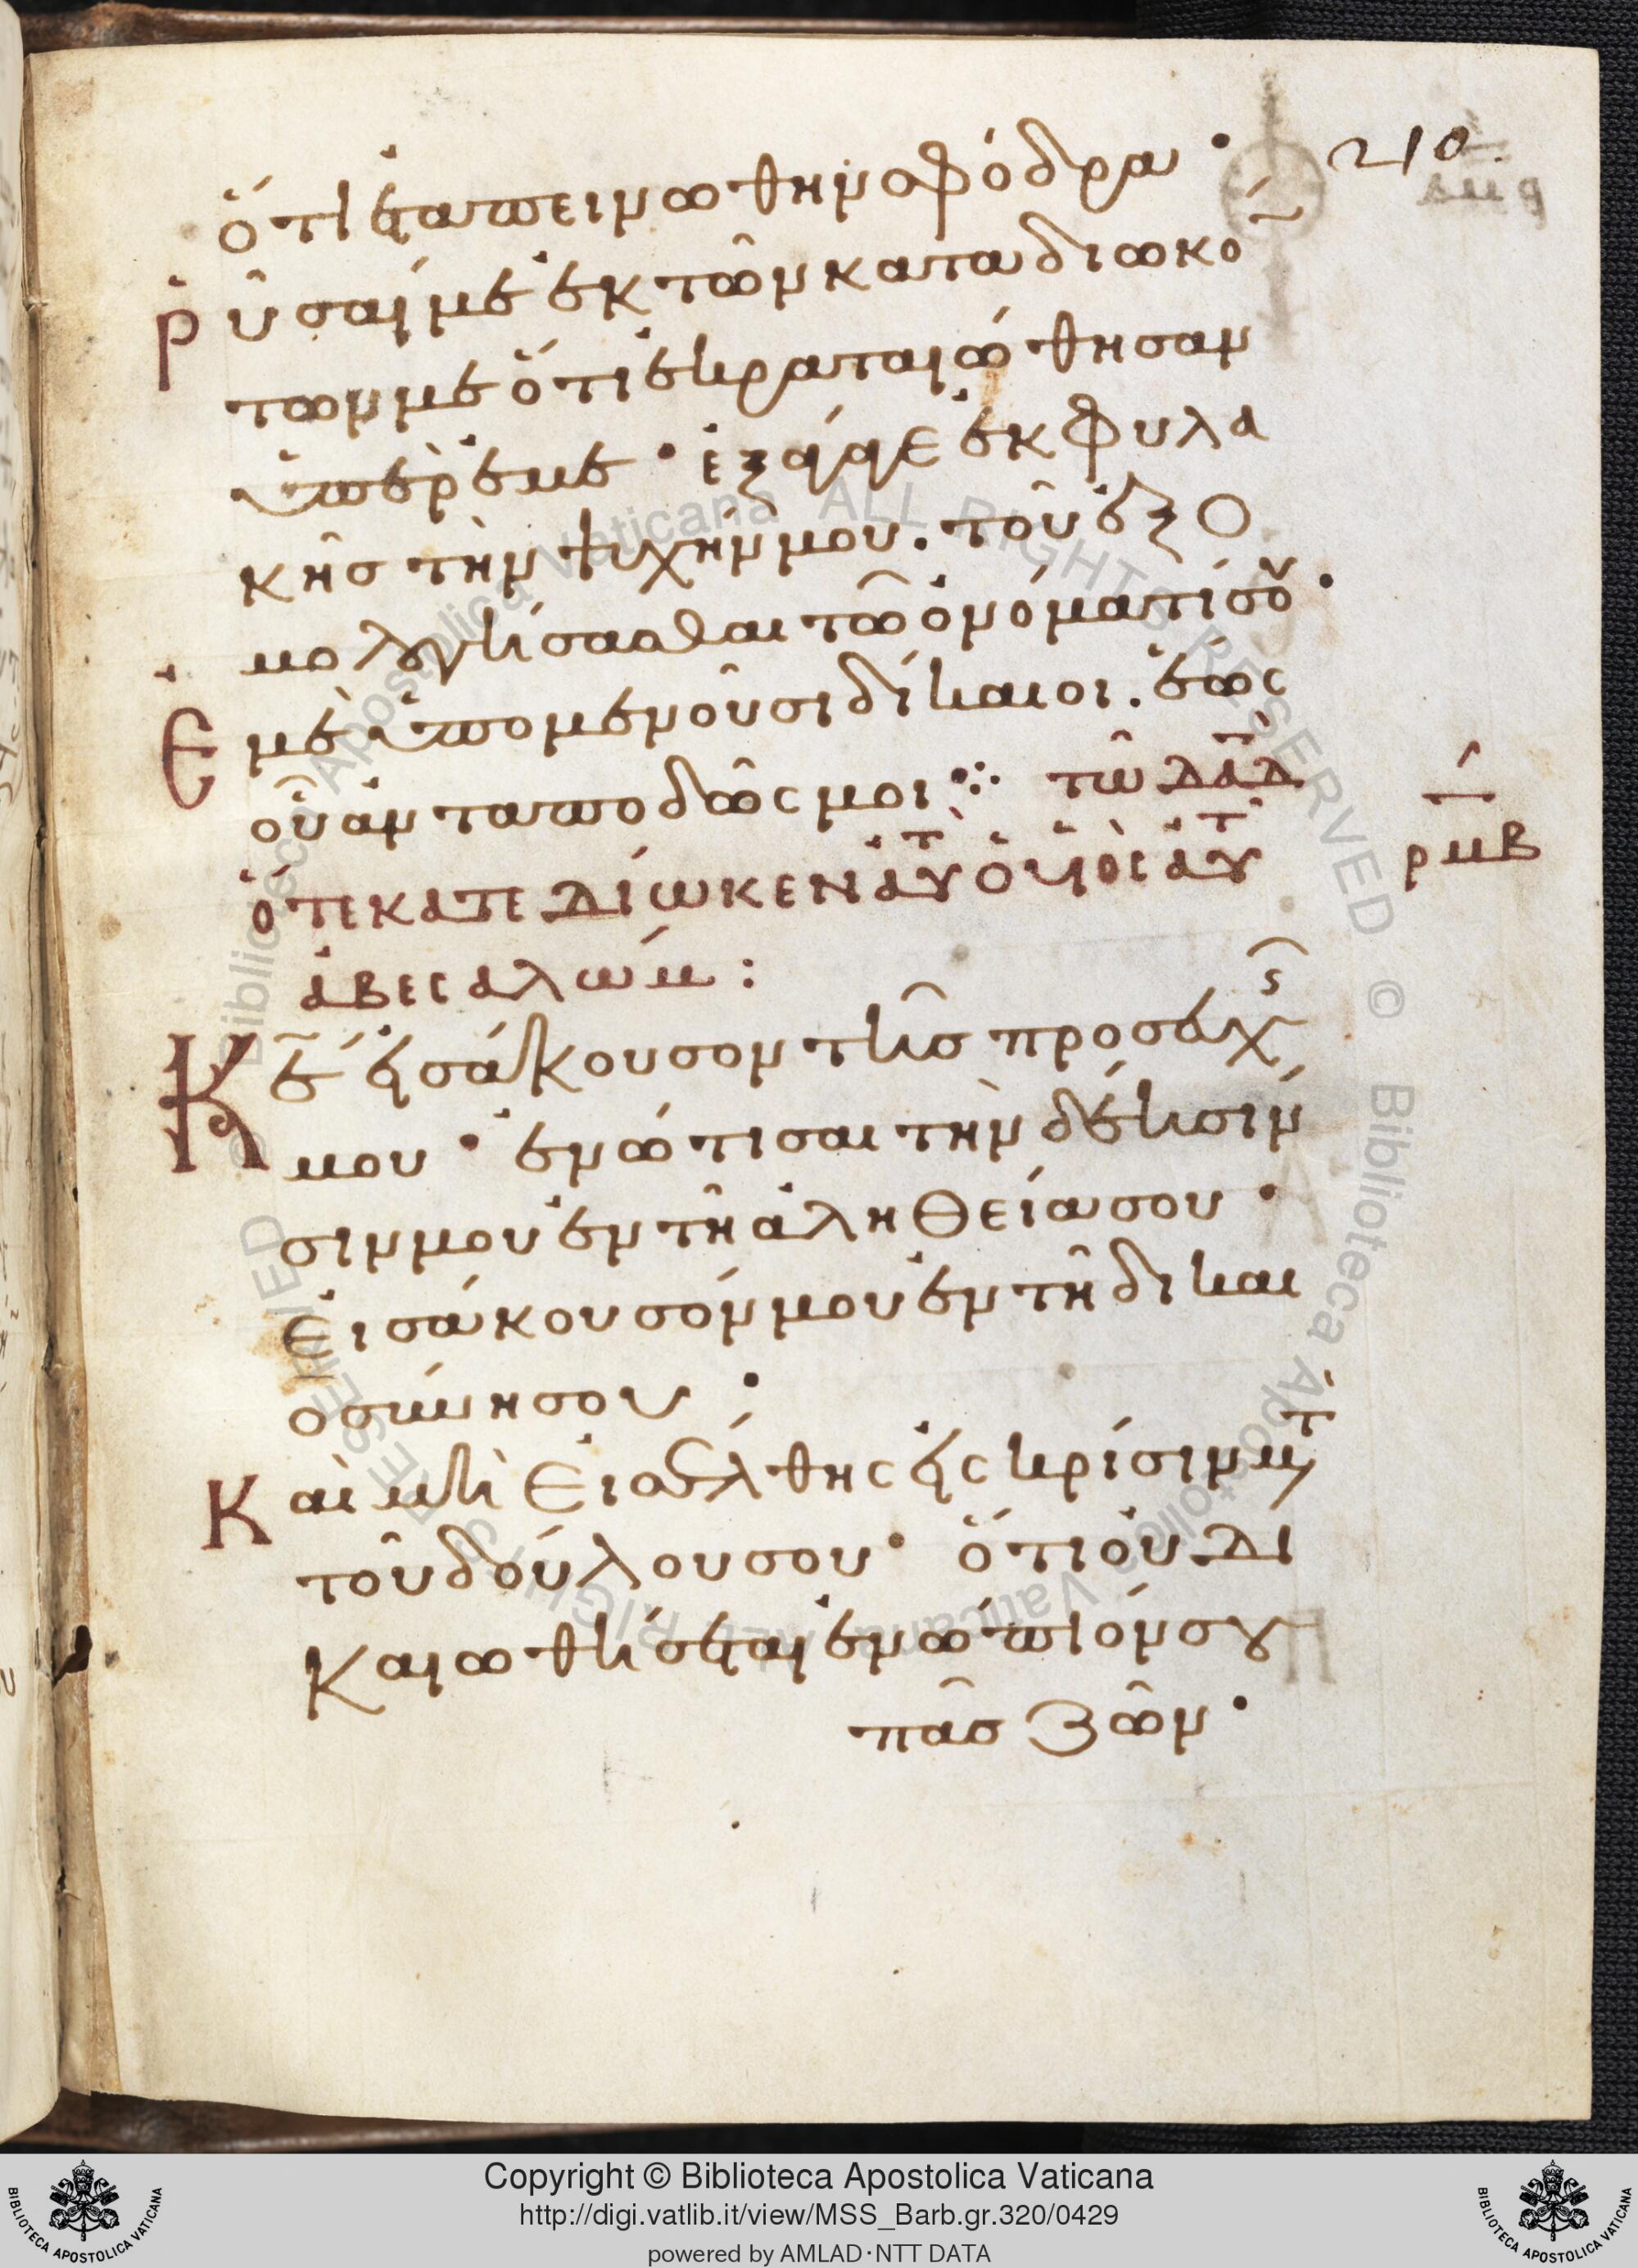 ὅτι ἐταπεινώθην σφόδρα· 210.
Ῥῦσαί με ἐκ τῶν καταδιωκό
των με ὅτι ἐκραταιώθησαν
ὑπὲρ ἐμέ· ἐξάγαγε ἐκ φυλα
κῆς τὴν ψυχήν μου. τοῦ ἐξο
μολογήσασθαι τῶ ὀνόματί σου·
Ἐμὲ ὑπομενοῦσι δίκαιοι. ἕως
οὗ ἀνταποδῶς μοι⁘ τῶ δαδ
ὅτε κατεδίωκεν αὐτ ὁ υἱὸς αὐτ ρμβ
ἀβεσαλώμ:
Κε εἰσάκουσον τῆς προσευχ
μου· ἐνώτισαι τὴν δέησίν
σιν μου ἐν τῆ ἀληθεία σου·
Εἰσάκουσόν μου ἐν τῆ δικαι
οσύνη σου·
Καὶ μὴ εἰσέλθης εἰς κρίσιν μτ
τοῦ δούλου σου· ὅτι οὐ δι
καιωθήσεται ἐνώπιόν σου
πᾶς ζῶν·
Copyright © Biblioteca Apostolica Vaticana
http://digi.vatlib.it/view/MSS_Barb.gr.320/0429
powered by AMLAD·NTT DATA
BIBLIOTECA APOSTOLICA VATICANA
BIBLIOTECA APOSTOLICA VATICANA